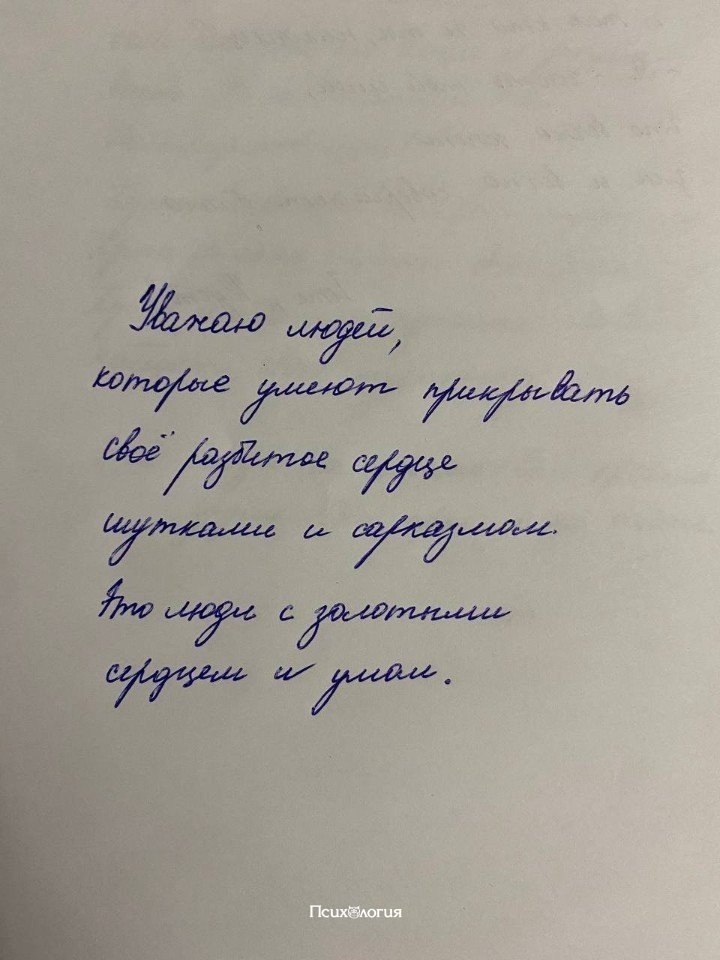 Уважаю людей,
которые умеют прикрывать
своё разбитое сердце
шутками и сарказмом.
Это люди с золотыми
сердцем и умом.
Психология